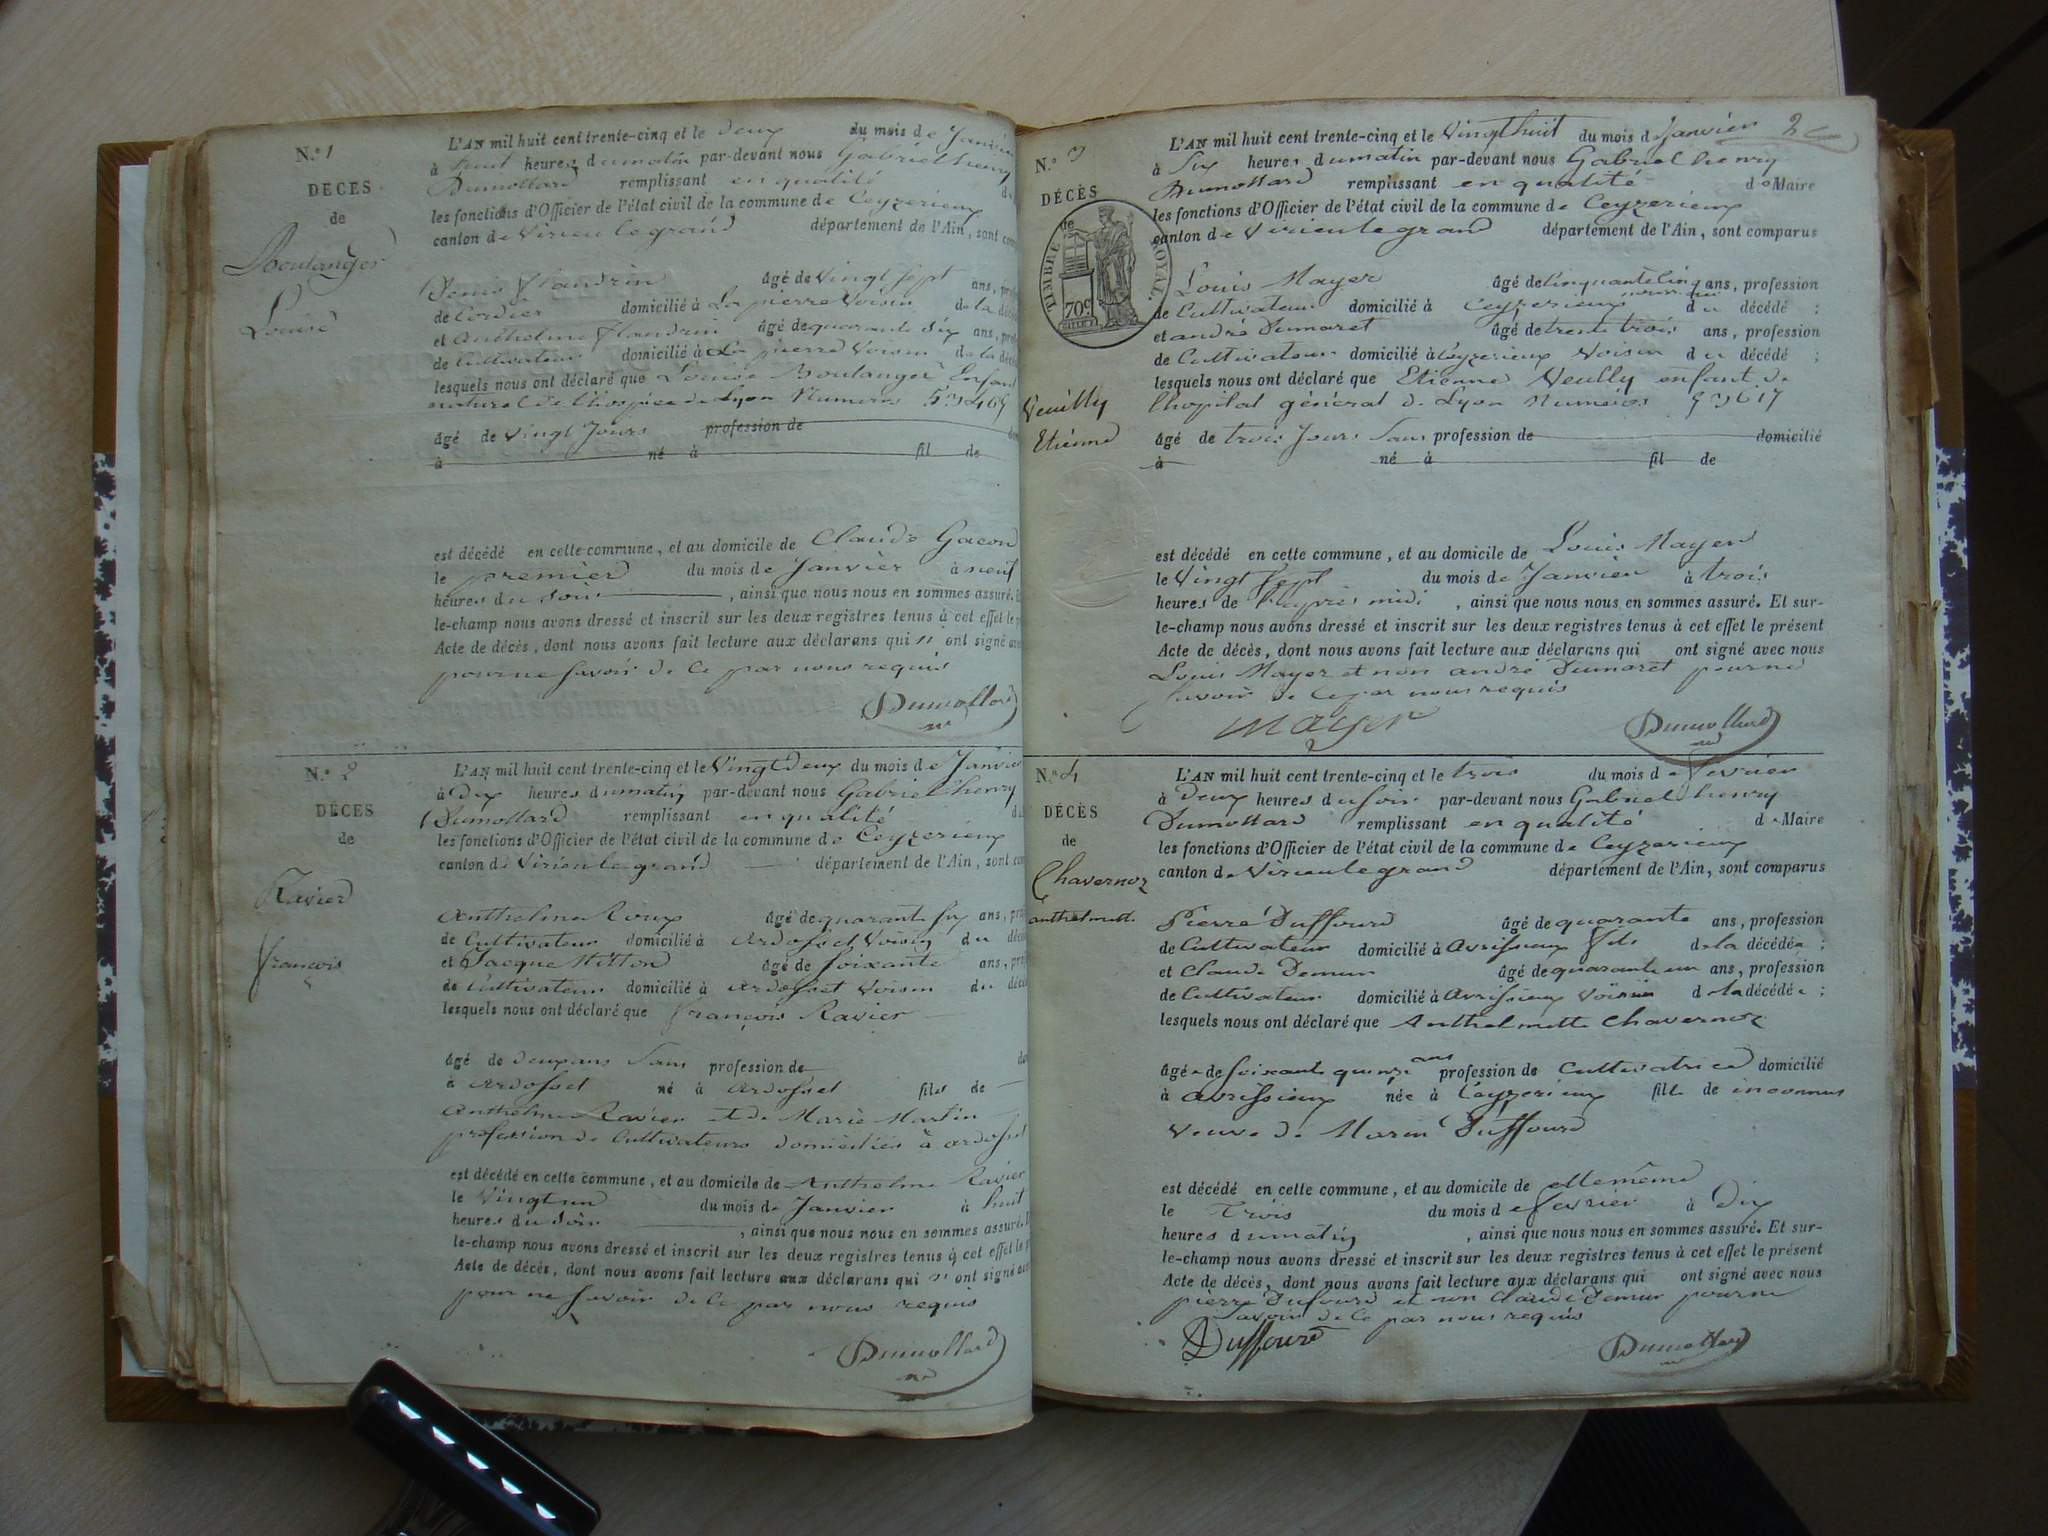 N.º 1
DÉCÈS
de
Boulanger
Louise
L'AN mil huit cent trente-cinq et le deux du mois de Janvier
à huit heures du matin par-devant nous Gabriel henry
Dumollard remplissant en qualité d
les fonctions d'Officier de l'état civil de la commune de Ceyzerieux
canton de Virieu le grand département de l'Ain, sont com
Denis Flandrin âgé de vingt sept ans, prof
de Cordier domicilié à La pierre Voisin de la décé
et Anthelme Flandrin âgé de quarante six ans, prof
de Cultivateur domicilié à La pierre Voisin de la décé
lesquels nous ont déclaré que Louise Boulanger Enfant
naturel de l'hospice de Lyon Numeros
âgé de vingt Jours profession de dom
à né à fil de
est décédé en cette commune, et au domicile de Claude Gacon
le premier du mois de Janvier à neuf
heures du soir, ainsi que nous nous en sommes assuré. E
le-champ nous avons dressé et inscrit sur les deux registres tenus à cet effet le p
Acte de décès, dont nous avons fait lecture aux déclarans qui n' ont signé ave
pour ne savoir de ce par nous requis
Dumollard
N.º 2
DÉCÈS
de
Ravier
françois
L'AN mil huit cent trente-cinq et le Vingt Deux du mois de Janvier
à dix heures du matin par-devant nous Gabriel henry
Dumollard remplissant en qualité d
les fonctions d'Officier de l'état civil de la commune de Ceyzerieux
canton de Virieu le grand département de l'Ain, sont com
Anthelme Roux âgé de quarante six ans, prof
de Cultivateur domicilié à Ardosset Voisin du décé
et Jacque Mitton âgé de soixante ans, prof
de Cultivateur domicilié à Ardosset Voisin du décé
lesquels nous ont déclaré que françois Ravier
âgé de deux ans Sans profession de do
à Ardosset né à Ardosset fils de
Anthelme Ravier et de Marie Martin
profession de Cultivateurs domiciliés à ardosset
est décédé en cette commune, et au domicile de Anthelme Ravier
le Vingt un du mois de Janvier à huit
heures du Soir, ainsi que nous nous en sommes assuré. E
le-champ nous avons dressé et inscrit sur les deux registres tenus à cet effet le p
Acte de décès, dont nous avons fait lecture aux déclarans qui n' ont signé ave
pour ne savoir de ce par nous requis
Dumollard
2
N.º 3
DÉCÈS
de
TIMBRE ROYAL
70c
Veuilly
Etienne
L'AN mil huit cent trente-cinq et le Vingt huit du mois de Janvier
à Six heures du matin par-devant nous Gabriel henry
Dumollard remplissant en qualité de Maire
les fonctions d'Officier de l'état civil de la commune de Ceyzerieux
canton de Virieu le grand département de l'Ain, sont comparus
Louis Mayer âgé de Cinquante Cinq ans, profession
de Cultivateur domicilié à Ceyzerieux du décédé ;
et andré Dumaret âgé de trente trois ans, profession
de Cultivateur domicilié à Ceyzerieux Voisin du décédé ;
lesquels nous ont déclaré que Etienne Veuilly enfant de
l'hopital général de Lyon Numéros 53617
âgé de trois Jours Sans profession de domicilié
à né à fil de
est décédé en cette commune, et au domicile de Louis Mayer
le Vingt Sept du mois de Janvier à trois
heures de l'après midi, ainsi que nous nous en sommes assuré. Et sur-
le-champ nous avons dressé et inscrit sur les deux registres tenus à cet effet le présent
Acte de décès, dont nous avons fait lecture aux déclarans qui ont signé avec nous
Louis Mayer et non andré Dumaret pour ne
savoir de ce par nous requis
Mayer Dumollard
N.º 4
DÉCÈS
de
Chavernoz
anthelmette
L'AN mil huit cent trente-cinq et le trois du mois de fevrier
à Deux heures du soir par-devant nous Gabriel henry
Dumollard remplissant en qualité de Maire
les fonctions d'Officier de l'état civil de la commune de Ceyzerieux
canton de Virieu le grand département de l'Ain, sont comparus
Pierre Duffourd âgé de quarante ans, profession
de Cultivateur domicilié à Avrissieux fils de la décédée ;
et Claude Demur âgé de quarante un ans, profession
de Cultivateur domicilié à Avrissieux Voisin de la décédée ;
lesquels nous ont déclaré que Anthelmette Chavernoz
âgée de soixante quinze ans profession de Cultivatrice domicilié
à Avrissieux née à Ceyzerieux fille de inconnus
Veuve de Marin Duffourd
est décédé en cette commune, et au domicile de elle même
le trois du mois de fevrier à Dix
heures du matin, ainsi que nous nous en sommes assuré. Et sur-
le-champ nous avons dressé et inscrit sur les deux registres tenus à cet effet le présent
Acte de décès, dont nous avons fait lecture aux déclarans qui ont signé avec nous
pierre Dufourd et non Claude Demur pour ne
savoir de ce par nous requis
Duffourd Dumollard